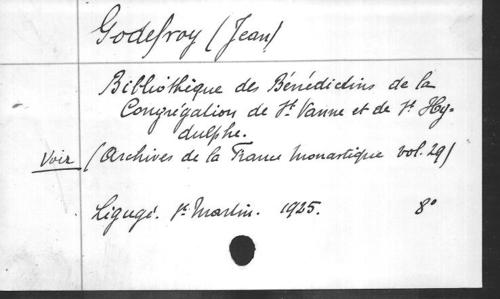 Godefroy (Jean)
Bibliothèque des Bénédictins de la
Congrégation de St. Vanne et de St. Hy-
dulphe.
Voir (Archives de la France monastique vol. 29)
Ligugé. St. Martin. 1925. 8°